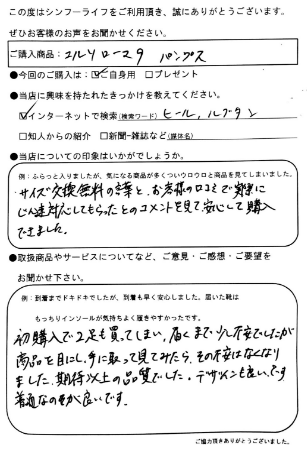 この度はシンフーライフをご利用頂き、誠にありがとうございます。
ぜひお客様のお声をお聞かせください。
ご購入商品：エルソローズタ パンプス
●今回のご購入は：☑ご自身用 □プレゼント
●当店に興味を持たれたきっかけを教えてください。
☑インターネットで検索(検索ワード) ヒール,ルブタン
□知人からの紹介 □新聞・雑誌など(媒体名)
●当店についての印象はいかがでしょうか。
例：ふらっと入りましたが、気になる商品が多くついウロウロと商品を見てしまいました。
サイズ交換無料の言葉と、お客様の口コミで
対応してもらったとのコメントを見て、安心して購入
できました。
●取扱商品やサービスについてなど、ご意見・ご感想・ご要望を
お聞かせ下さい。
例：到着までドキドキでしたが、到着も早く安心しました。届いた靴は
もっちりインソールが気持ちよく履きやすかったです。
初購入で2足も買ってしまい、届くまで少し不安でしたが
商品を目にし、手に取って見てみたら、その不安はなくなり
ました。期待以上の品質でした。デザインも良いです
が良いです。
ご協力頂きありがとうございました。